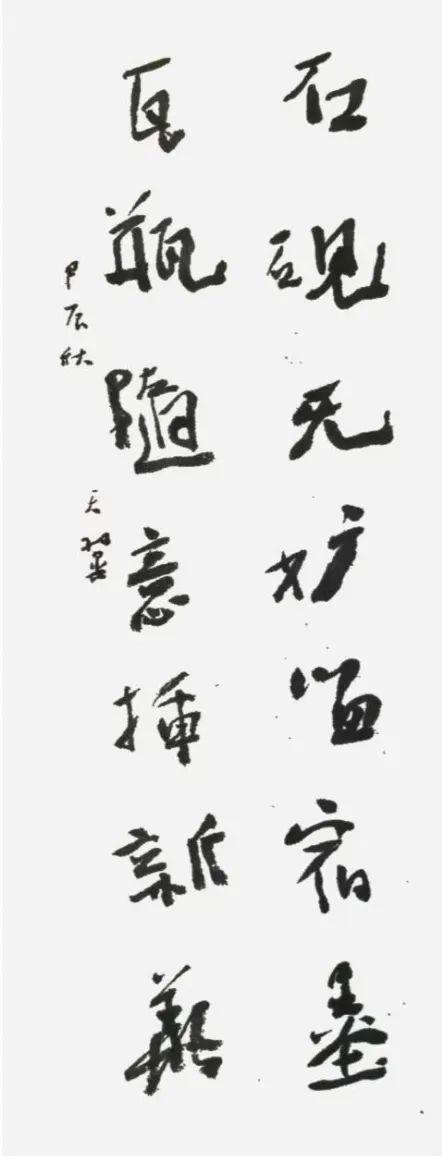 石砚无妨留宿墨
瓦瓶隨意插新
甲辰秋 天翼